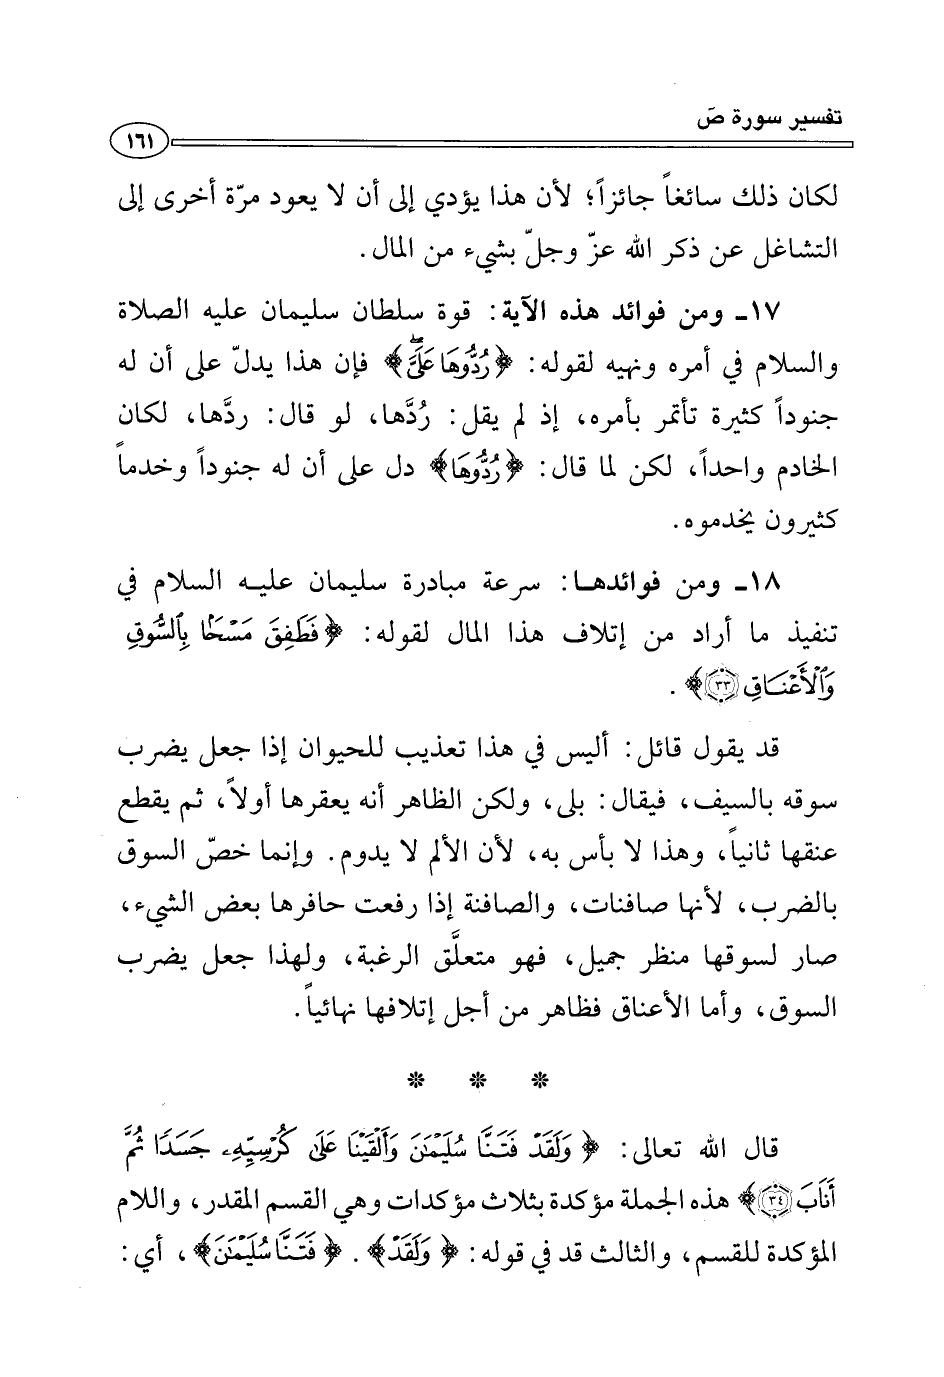 تفسير سورة صَ
١٦١
لكان ذلك سائغاً جائزاً؛ لأن هذا يؤدي إلى أن لا يعود مرّة أخرى إلى
التشاغل عن ذكر الله عزّ وجلّ بشيء من المال.
١٧ـ ومن فوائد هذه الآية: قوة سلطان سليمان عليه الصلاة
والسلام في أمره ونهيه لقوله: ﴿رُدُّوهَا عَلَىَّ﴾ فإن هذا يدلّ على أن له
جنوداً كثيرة تأتمر بأمره، إذ لم يقل: رُدَّها، لو قال: ردَّها، لكان
الخادم واحداً، لكن لما قال: ﴿رُدُّوهَا﴾ دل على أن له جنوداً وخدماً
كثيرون يخدموه.
١٨ـ ومن فوائدهـا: سرعة مبادرة سليمان عليـه السلام في
تنفيذ ما أراد من إتلاف هذا المال لقوله: ﴿فَطَفِقَ مَسْحًا بِٱلسُّوقِ
وَٱلْأَعْنَاقِ ٣٣﴾.
قد يقول قائل: أليس في هذا تعذيب للحيوان إذا جعل يضرب
سوقه بالسيف، فيقال: بلى، ولكن الظاهر أنه يعقرها أولاً، ثم يقطع
عنقها ثانياً، وهذا لا بأس به، لأن الألم لا يدوم. وإنما خصّ السوق
بالضرب، لأنها صافنات، والصافنة إذا رفعت حافرها بعض الشيء،
صار لسوقها منظر جميل، فهو متعلَّق الرغبة، ولهذا جعل يضرب
السوق، وأما الأعناق فظاهر من أجل إتلافها نهائياً.
* * *
قال الله تعالى: ﴿وَلَقَدْ فَتَنَّا سُلَيْمَٰنَ وَأَلْقَيْنَا عَلَىٰ كُرْسِيِّهِۦ جَسَدًا ثُمَّ
أَنَابَ ٣٤﴾ هذه الجملة مؤكدة بثلاث مؤكدات وهي القسم المقدر، واللام
المؤكدة للقسم، والثالث قد في قوله: ﴿وَلَقَدْ﴾. ﴿فَتَنَّا سُلَيْمَٰنَ﴾، أي: